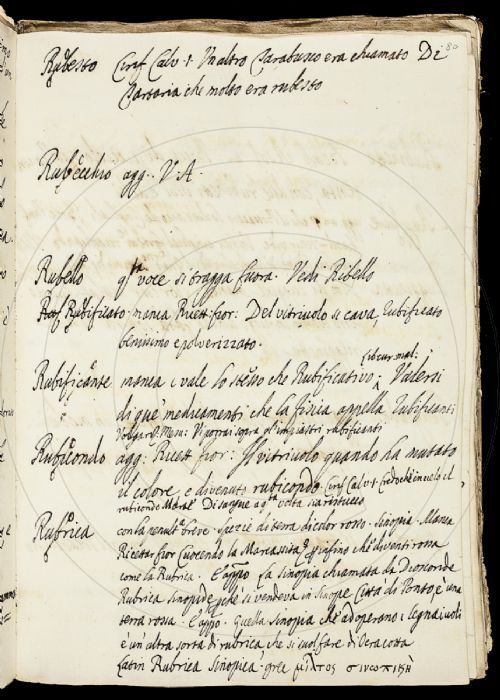 80
Rubesto Ciriff. Calv. 1. Un altro Barabusco era chiamato Di
Barbaria che molto era rubesto
Rubecchio agg. V. A.
Rubello q.ta voce si tragga fuora. Vedi Ribello
Rubificato manca Ricett. fior: Del vitriuolo si cava, rubificato
benissimo e polverizzato.
Rubificante manca, vale lo stesso che Rubificativo; Valersi
di que' medicamenti che la fisica appella rubificanti
Volgar. Mesu: Vi porrai sopra gl'impiastri rubificanti
Rubicondo agg: Ricett. fior: Il vitriuolo quando ha mutato
il colore, e divenuto rubicondo Ciriff. Calv. 1.
rubicondo Di sangue
Rubrica con la penult. breve spezie di terra di color rosso. Sinopia. Manca
Ricett. fior Cuocendo la Marcassita infino che diventi rossa
come la Rubrica. E appo La Sinopia chiamata da Dioscoride
Rubrica Sinopide perchè si vendeva in Sinope Città di Ponto, è una
terra rossa. E appo. Quella Sinopia che adoperano i legnaiuoli
è un'altra sorta di rubrica, che si suol fare di Vera cotta
Latin Rubrica Sinopica. grec. μίλτος σινωπική